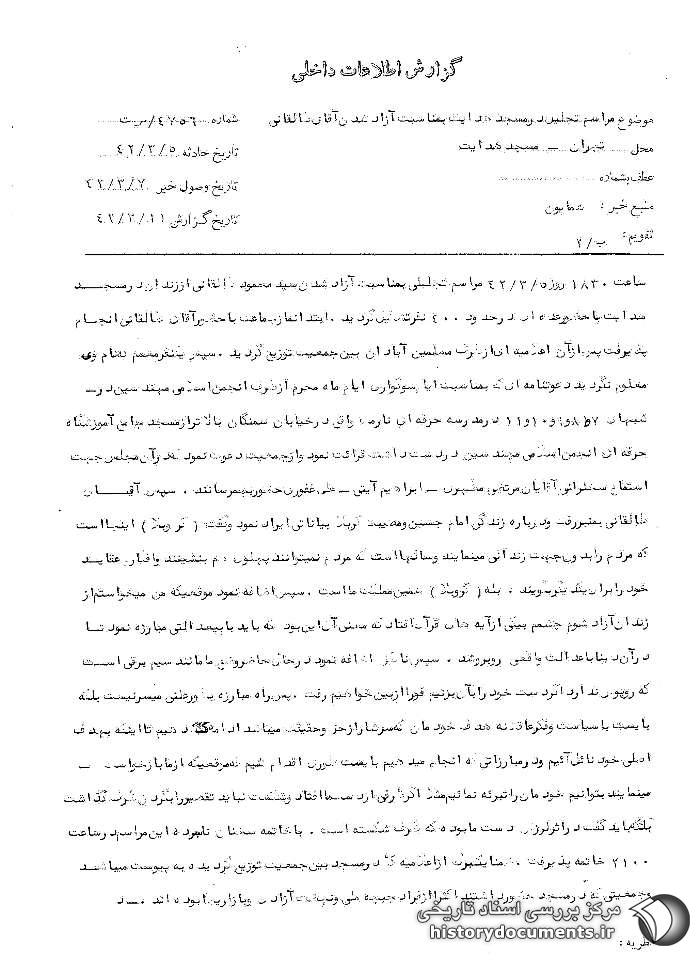 گزارش اطلاعات داخلی
موضوع مراسم تجلیل در مسجد هدایت بمناسبت آزاد شدن آقای طالقانی
شماره
محل تهران – مسجد هدایت
تاریخ حادثه ۴۲/۳/۵
عطف بشماره
تاریخ وصول خبر ۴۲/۳/۷
منبع خبر : شمایون
تاریخ گزارش ۴۲/۳/۱۱
تقویم : ب/۲
ساعت ۱۸۳۰ روز ۴۲/۳/۵ مراسم تجلیلی بمناسبت آزاد شدن سید محمود طالقانی از زندان در مسجد
هدایت با حضور عده ای در حدود ۴۰۰ نفر تشکیل گردید . ابتدا نماز جماعت با حضور آقای طالقانی انجام
پذیرفت پس از آن اعلامیه ای از طرف مسلمین آبادان بین جمعیت توزیع گردید . سپس یکنفر معمم که نام وی
معلوم نگردید دعوتنامه ای که بمناسبت ایام سوگواری ایام ماه محرم از طرف انجمن اسلامی مهندسین در
شبهای ۷و۸و۹و۱۰و۱۱ در مدرسه حرفه ای نارمک واقع در خیابان سمنگان بالاتر از مسجد جامع آموزشگاه
حرفه ای انجمن اسلامی مهندسین در دست داشت قرائت نمود و از جمعیت دعوت نمود که در آن مجلس جهت
استماع سخنرانی آقایان مرتضی مطهری – ابراهیم آیتی – علی غفوری حضور بهمرسانند . سپس آقای
طالقانی بمنبر رفت و درباره زندگی امام حسین و مصیبت کربلا بیاناتی ایراد نمود و گفت : ( کربلا ) اینجا است
که مردم را بدون جهت زندانی مینمایند و سالهاست که مردم نمیتوانند پهلوی هم بنشینند و افکار و عقاید
خود را برای یکدیگر بگویند . بله ( کربلا ) همین مملکت ما است . سپس اضافه نمود موقعیکه من میخواستم از
زندان آزاد شوم چشمم بیکی از آیه های قرآن افتاد که معنی آن این بود که باید با بیعدالتی مبارزه نمود تا
در آن دنیا با عدالت واقعی روبرو شد . سپس نامبرده اضافه نمود در حال حاضر وضع ما مانند سیم برقی است
که روپوش ندارد اگر دست خود را بآن بزنیم فورا از بین خواهیم رفت . پس راه مبارزه بطور علنی میسر نیست بلکه
بایست با سیاست و فکر عاقلانه هدف خودمان که سرشار از حق و حقیقت میباشد ادامه دهیم تا اینکه بهدف
اصلی خود نائل آئیم و در مبارزاتی که انجام میدهیم بایست طوری اقدام کنیم که موقعیکه از ما بازخواست
مینمایند بتوانیم خودمان را تبرئه نمائیم مثلا اگر ظرفی از دست ما افتاد و شکست نباید تقصیر را بگردن ظرف گذاشت
بلکه باید گفت در اثر لرزش دست ما بوده که ظرف شکسته است . با خاتمه سخنان نامبرده این مراسم در ساعت
۲۱۰۰ خاتمه پذیرفت . ضمنا یکبرگ از اعلامیه که در مسجد بین جمعیت توزیع گردیده به پیوست میباشد
و جمعیتی که در مسجد حضور داشتند اکثرا از افراد جبهه ملی و نهضت آزادی و بازاریها بوده اند
نظریه :
مرکز بررسی اسناد تاریخی
historydocuments.ir